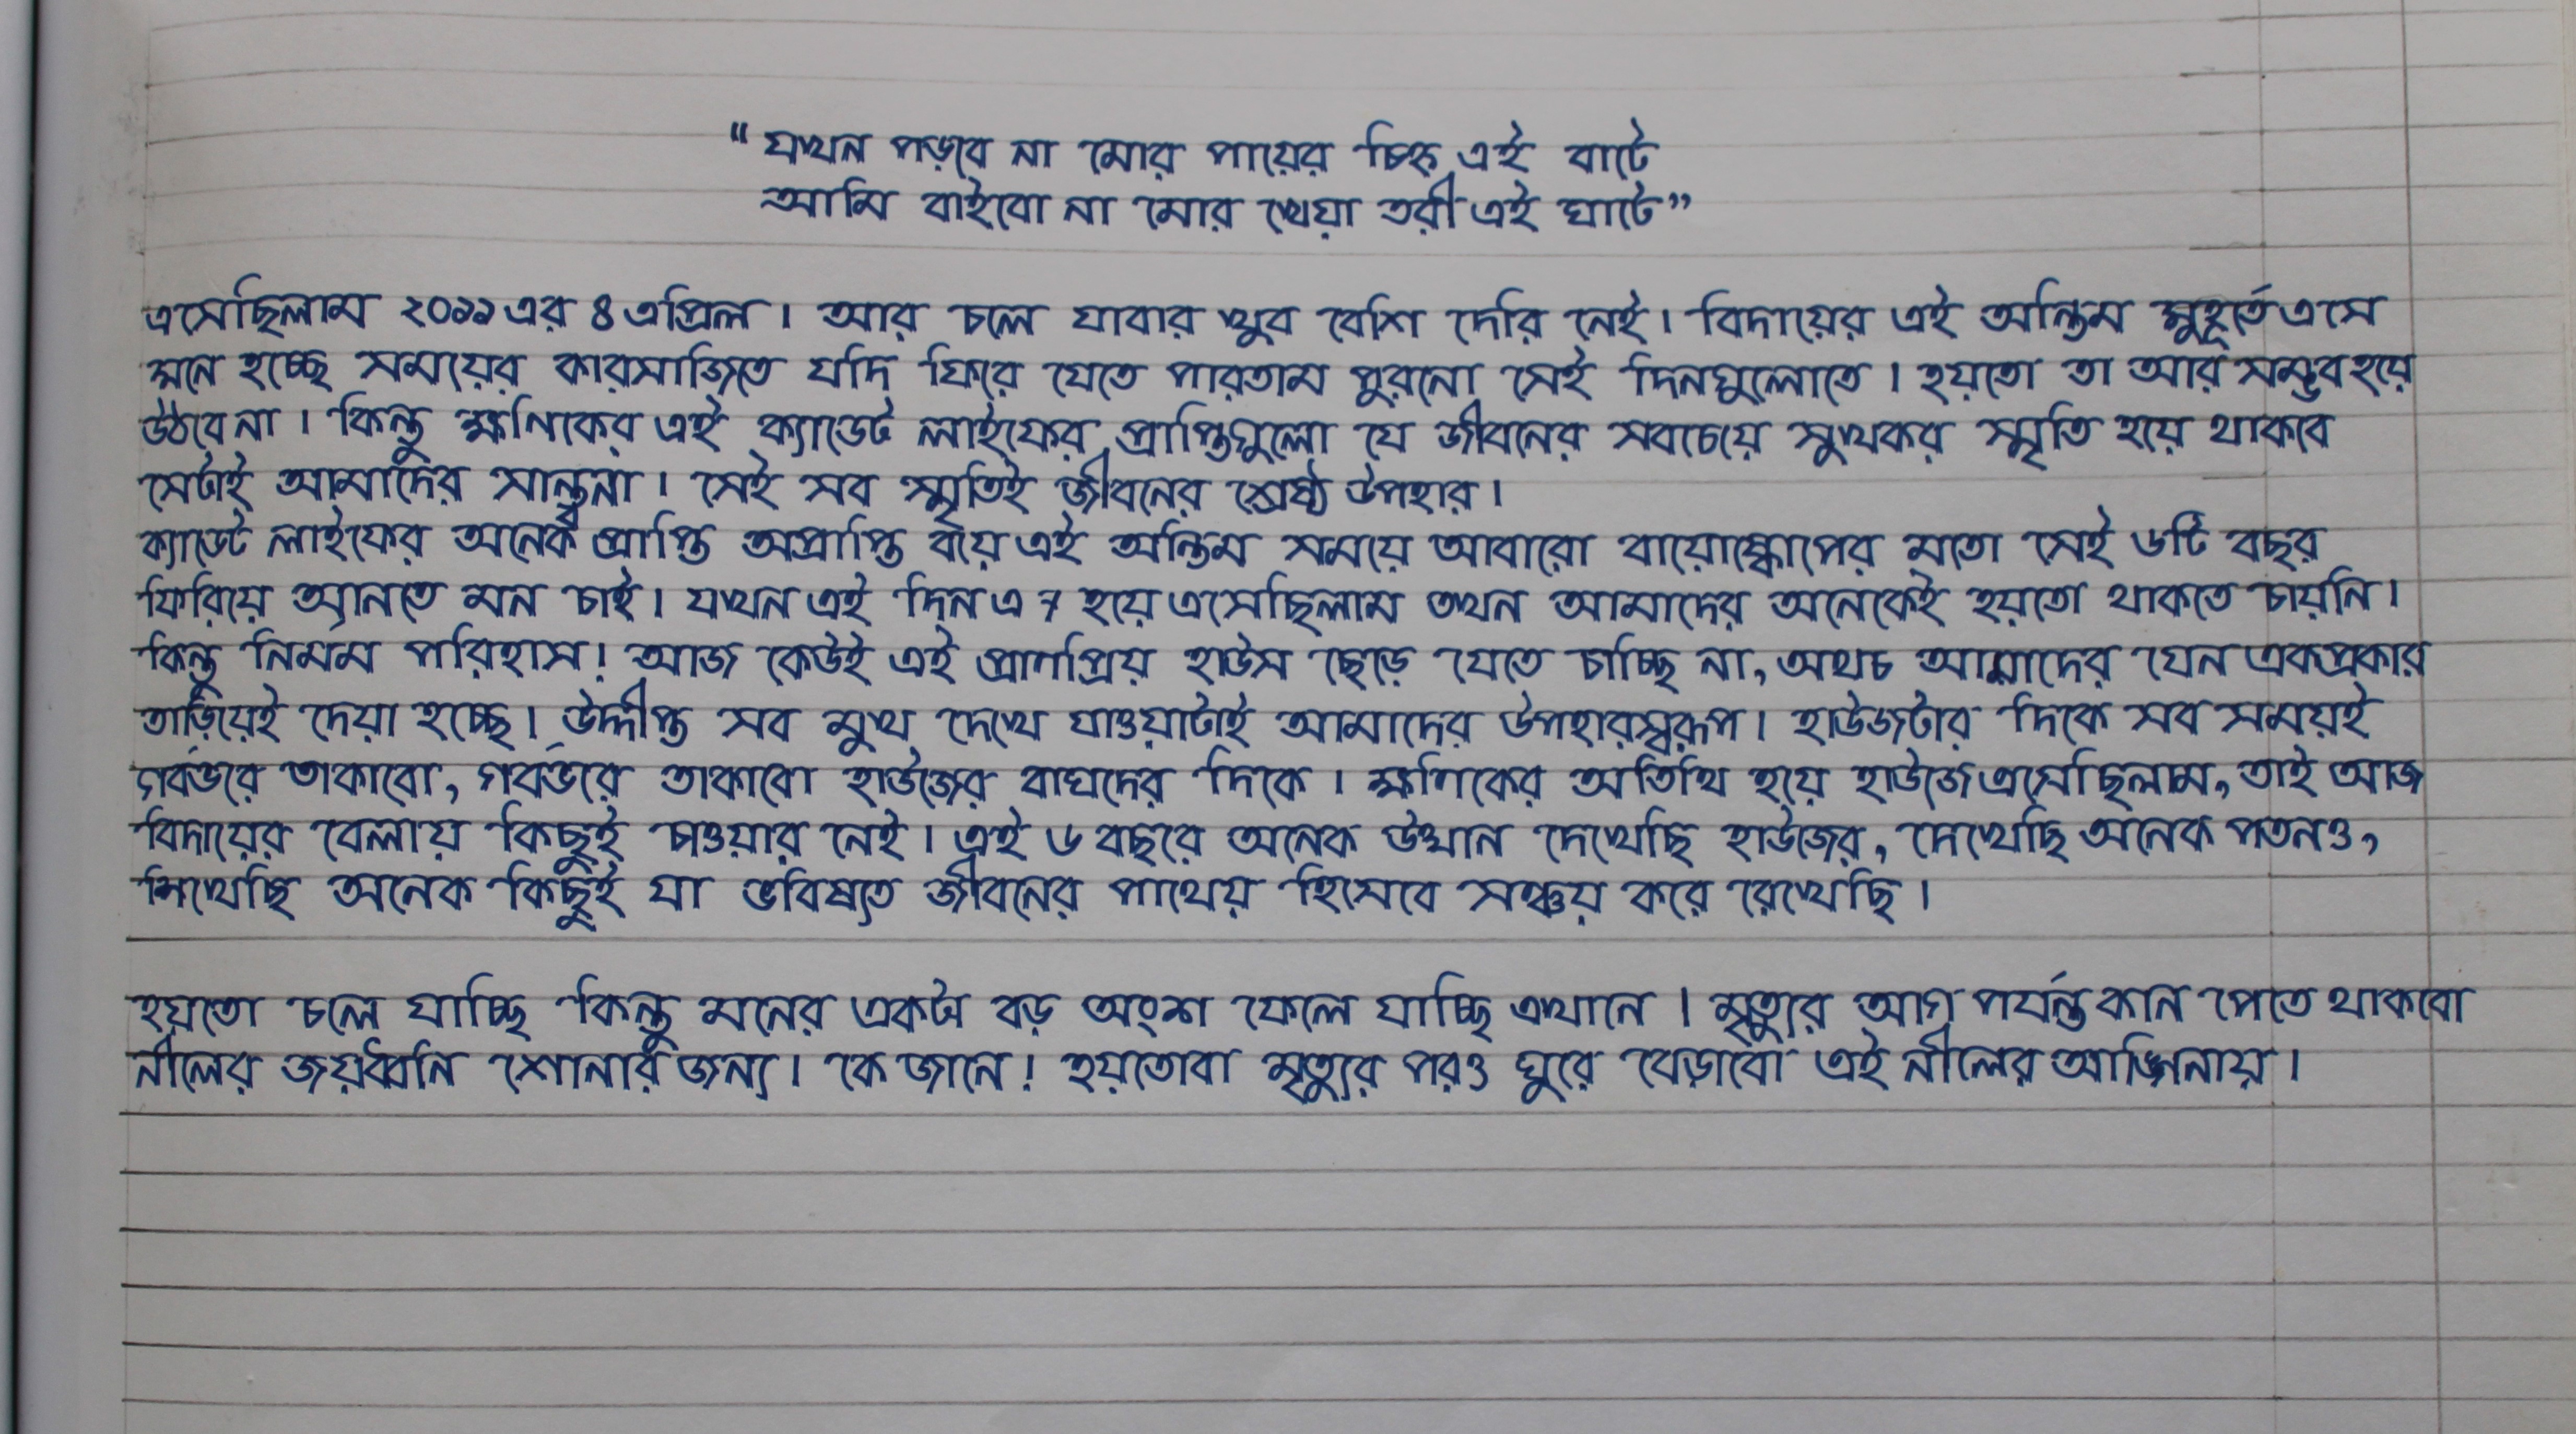 “ যখন পড়বে না মোর পায়ের চিহ্ন এই বাটে
আমি বাইবো না মোর খেয়া তরী এই ঘাটে”
এসেছিলাম ২০১১ এর ৪ এপ্রিল। আর চলে যাবার খুব বেশি দেরি নেই। বিদায়ের এই অন্তিম মুহূর্তে এসে
মনে হচ্ছে সময়ের কারসাজিতে যদি ফিরে যেতে পারতাম পুরনো সেই দিনগুলোতে। হয়তো তা আর সম্ভব হয়ে
উঠবে না। কিন্তু ক্ষণিকের এই ক্যাডেট লাইফের প্রাপ্তিগুলো যে জীবনের সবচেয়ে সুখকর স্মৃতি হয়ে থাকবে
সেটাই আমাদের সান্ত্বনা। সেই সব স্মৃতিই জীবনের শ্রেষ্ঠ উপহার।
ক্যাডেট লাইফের অনেক প্রাপ্তি অপ্রাপ্তি বয়ে এই অন্তিম সময়ে আবারো বায়োস্কোপের মতো সেই ৬টি বছর
ফিরিয়ে আনতে মন চাই। যখন এই দিন এ ৭ হয়ে এসেছিলাম তখন আমাদের অনেকেই হয়তো থাকতে চায়নি।
কিন্তু নির্মম পরিহাস! আজ কেউই এই প্রাণপ্রিয় হাউস ছেড়ে যেতে চাচ্ছি না, অথচ আমাদের যেন একপ্রকার
তাড়িয়েই দেয়া হচ্ছে। উদ্দীপ্ত সব মুখ দেখে যাওয়াটাই আমাদের উপহারস্বরূপ। হাউজটার দিকে সব সময়ই
গর্বভরে তাকাবো, গর্বভরে তাকাবো হাউজের বাঘদের দিকে। ক্ষণিকের অতিথি হয়ে হাউজে এসেছিলাম, তাই আজ
বিদায়ের বেলায় কিছুই চাওয়ার নেই। এই ৬ বছরে অনেক উত্থান দেখেছি হাউজের, দেখেছি অনেক পতনও,
শিখেছি অনেক কিছুই যা ভবিষ্যত জীবনের পাথেয় হিসেবে সঞ্চয় করে রেখেছি।
হয়তো চলে যাচ্ছি কিন্তু মনের একটা বড় অংশ ফেলে যাচ্ছি এখানে। মৃত্যুর আগ পর্যন্ত কান পেতে থাকবো
নীলের জয়ধ্বনি শোনার জন্য। কে জানে! হয়তোবা মৃত্যুর পরও ঘুরে বেড়াবো এই নীলের আঙ্গিনায়।